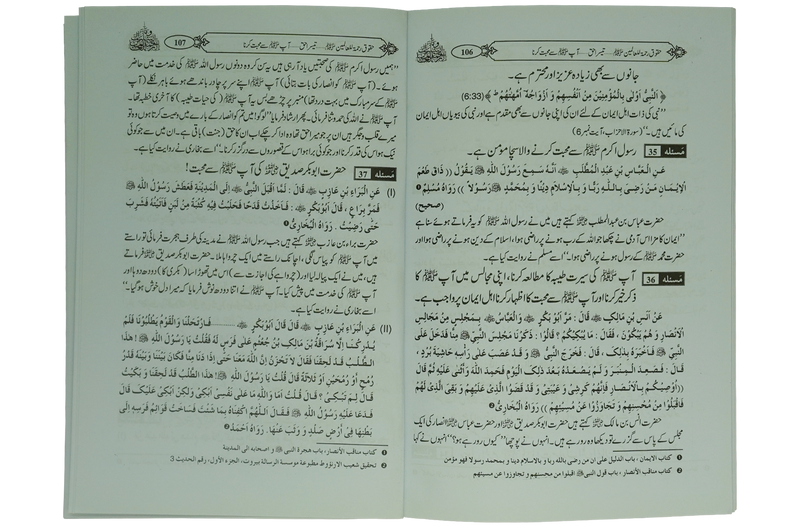 106
حقوق رحمۃ للعالمین ﷺ ..... تیسرا حق ..... آپ ﷺ سے محبت کرنا
جانوں سے بھی زیادہ عزیز اور محترم ہے۔
﴿ اَلنَّبِیُّ اَوْلٰی بِالْمُؤْمِنِیْنَ مِنْ اَنْفُسِهِمْ وَ اَزْوَاجُهٗ اُمَّهٰتُهُمْ ط﴾ (6:33)
”نبی کی ذات اہل ایمان کے لئے ان کی اپنی جانوں سے بھی مقدم ہے اور نبی کی بیویاں اہل ایمان کی
مائیں ہیں۔“ (سورۃ الاحزاب، آیت نمبر 6)
مسئلہ 35 رسول اکرم ﷺ سے محبت کرنے والا سچا مومن ہے۔
عَنِ الْعَبَّاسِ بْنِ عَبْدِ الْمُطَّلِبِ ﷺ اَنَّهُ سَمِعَ رَسُوْلَ اللّٰهِ ﷺ یَقُوْلُ ((ذَاقَ طَعْمَ
الْاِیْمَانِ مَنْ رَضِیَ بِاللّٰهِ رَبًّا وَ بِالْاِسْلَامِ دِیْنًا وَ بِمُحَمَّدٍ ﷺ رَسُوْلًا )) رَوَاهُ مُسْلِمٌ ❶
(صحیح)
حضرت عباس بن عبدالمطلب کہتے ہیں میں نے رسول اللہ ﷺ کو یہ فرماتے ہوئے سنا ہے
”ایمان کا مزا اس آدمی نے چکھا جو اللہ کے رب ہونے پر راضی ہوا، اسلام کے دین ہونے پر راضی ہوا اور
حضرت محمد ﷺ کے رسول ہونے پر راضی ہوا۔“ اسے مسلم نے روایت کیا ہے۔
مسئلہ 36 آپ ﷺ کی سیرت طیبہ کا مطالعہ کرنا، اپنی مجالس میں آپ ﷺ کا
ذکر خیر کرنا اور آپ ﷺ سے محبت کا اظہار کرنا اہل ایمان پر واجب ہے۔
عَنْ اَنَسِ بْنِ مَالِکٍ ﷺ قَالَ : مَرَّ اَبُوْ بَکْرٍ ﷺ وَالْعَبَّاسُ ﷺ بِمَجْلِسٍ مِنْ مَجَالِسِ
الْاَنْصَارِ وَ هُمْ یَبْکُوْنَ ، فَقَالَ : مَا یُبْکِیْکُمْ ؟ قَالُوْا : ذَکَرْنَا مَجْلِسَ النَّبِیِّ ﷺ مِنَّا فَدَخَلَ عَلَی
النَّبِیِّ ﷺ فَاَخْبَرَهُ بِذٰلِکَ ، قَالَ : فَخَرَجَ النَّبِیُّ ﷺ وَ قَدْ عَصَبَ عَلٰی رَأْسِهِ حَاشِیَةَ بُرْدٍ ،
قَالَ : فَصَعِدَ الْمِنْبَرَ وَ لَمْ یَصْعَدْهُ بَعْدَ ذٰلِکَ الْیَوْمِ فَحَمِدَ اللّٰهَ وَ اَثْنٰی عَلَیْهِ ثُمَّ قَالَ
((اُوْصِیْکُمْ بِالْاَنْصَارِ فَاِنَّهُمْ کَرِشِیْ وَ عَیْبَتِیْ وَ قَدْ قَضَوُا الَّذِیْ عَلَیْهِمْ وَ بَقِیَ الَّذِیْ لَهُمْ
فَاقْبَلُوْا مِنْ مُحْسِنِهِمْ وَ تَجَاوَزُوْا عَنْ مُسِیْئِهِمْ )) رَوَاهُ الْبُخَارِیُّ ❷
حضرت انس بن مالک کہتے ہیں حضرت ابوبکر اور حضرت عباس انصار کی ایک
مجلس کے پاس سے گزرے تو دیکھا وہ رو رہے ہیں۔ انہوں نے پوچھا ”کیوں رو رہے ہو؟“ انہوں نے کہا
❶ کتاب الایمان ، باب الدلیل علی ان من رضی باللہ ربا و بالاسلام دینا و بمحمد رسولا فهو مؤمن
❷ کتاب مناقب الأنصار ، باب قول النبی ﷺ اقبلوا من محسنهم و تجاوزوا عن مسیئهم
107
حقوق رحمۃ للعالمین ﷺ ..... تیسرا حق ..... آپ ﷺ سے محبت کرنا
”ہمیں رسول اکرم ﷺ کی صحبتیں یاد آ رہی ہیں یہ سن کر وہ دونوں رسول اللہ ﷺ کی خدمت میں حاضر
ہوئے۔ آپ ﷺ کو انصار کی بات بتائی) آپ ﷺ اپنے سر پر چادر باندھے ہوئے باہر نکلے (آپ
ﷺ کے سر مبارک میں بہت درد تھا) منبر پر چڑھے بس یہ آپ ﷺ (کی حیات طیبہ) کا آخری خطبہ تھا۔
آپ ﷺ نے اللہ کی حمد و ثنا فرمائی۔ پھر ارشاد فرمایا ”لوگو! میں تم کو انصار کے بارے میں وصیت کرتا ہوں وہ تو
میرے قلب و جگر ہیں ان پر جو میرا حق تھا وہ ادا کر چکے اب ان کا حق (جنت) باقی ہے۔ ان میں سے جو کوئی
نیک ہو اس کی قدر کرنا اور جو کوئی برا ہو اس کے قصوروں سے درگزر کرنا۔“ اسے بخاری نے روایت کیا ہے۔
مسئلہ 37 حضرت ابوبکر صدیق کی آپ ﷺ سے محبت!
(I) عَنِ الْبَرَاءِ بْنِ عَازِبٍ ﷺ قَالَ : لَمَّا اَقْبَلَ النَّبِیُّ ﷺ اِلَی الْمَدِیْنَةِ فَعَطِشَ رَسُوْلُ اللّٰهِ ﷺ
فَمَرَّ بِرَاعٍ ، قَالَ اَبُوْبَکْرٍ ﷺ : فَاَخَذْتُ قَدَحًا فَحَلَبْتُ فِیْهِ کُثْبَةً مِنْ لَبَنٍ فَاَتَیْتُهُ فَشَرِبَ
حَتّٰی رَضِیْتُ . رَوَاهُ الْبُخَارِیُّ ❶
حضرت براء بن عازب کہتے ہیں جب رسول اللہ ﷺ نے مدینہ کی طرف ہجرت فرمائی تو راستے
میں آپ ﷺ کو پیاس لگی، اچانک راستے میں ایک چرواہا ملا۔ حضرت ابوبکر صدیق فرماتے
ہیں، میں نے ایک پیالہ لیا اور (چرواہے کی اجازت سے ) اس میں تھوڑا سا (بکری کا) دودھ دوہا اور
آپ ﷺ کی خدمت میں پیش کیا۔ آپ ﷺ نے اتنا دودھ نوش فرمایا کہ میرا دل خوش ہو گیا۔
اسے بخاری نے روایت کیا ہے۔
(II) عَنِ الْبَرَاءِ بْنِ عَازِبٍ ﷺ قَالَ قَالَ اَبُوْبَکْرٍ ﷺ ......... فَارْتَحَلْنَا وَالْقَوْمُ یَطْلُبُوْنَا فَلَمْ
یُدْرِکْنَا اِلَّا سُرَاقَةُ بْنُ مَالِکِ بْنِ جُعْشُمٍ عَلٰی فَرَسٍ لَهُ فَقُلْتُ : یَا رَسُوْلَ اللّٰهِ ﷺ ! هٰذَا
الطَّلَبُ قَدْ لَحِقَنَا فَقَالَ لَا تَحْزَنْ اِنَّ اللّٰهَ مَعَنَا حَتّٰی اِذَا دَنَا مِنَّا فَکَانَ بَیْنَنَا وَ بَیْنَهُ قَدْرُ
رُمْحٍ اَوْ رُمْحَیْنِ اَوْ ثَلَاثَةٍ قَالَ قُلْتُ یَا رَسُوْلَ اللّٰهِ ﷺ! هٰذَا الطَّلَبُ قَدْ لَحِقَنَا وَ بَکَیْتُ
قَالَ لِمَ تَبْکِیْ ؟ قَالَ قُلْتُ اَمَا وَاللّٰهِ مَا عَلٰی نَفْسِیْ اَبْکِیْ وَلٰکِنْ اَبْکِیْ عَلَیْکَ قَالَ
فَدَعَا عَلَیْهِ رَسُوْلُ اللّٰهِ ﷺ فَقَالَ اَللّٰهُمَّ اکْفِنَاهُ بِمَا شِئْتَ فَسَاخَتْ قَوَائِمُ فَرَسِهِ اِلٰی
بَطْنِهَا فِیْ اَرْضٍ صَلْدٍ وَ وَثَبَ عَنْهَا . رَوَاهُ اَحْمَدُ ❷
❶ کتاب مناقب الأنصار ، باب هجرة النبی ﷺ و اصحابه الی المدینة
❷ تحقیق شعیب الارنؤوط مطبوعة موسسة الرسالة بیروت ، الجزء الأول ، رقم الحدیث 3